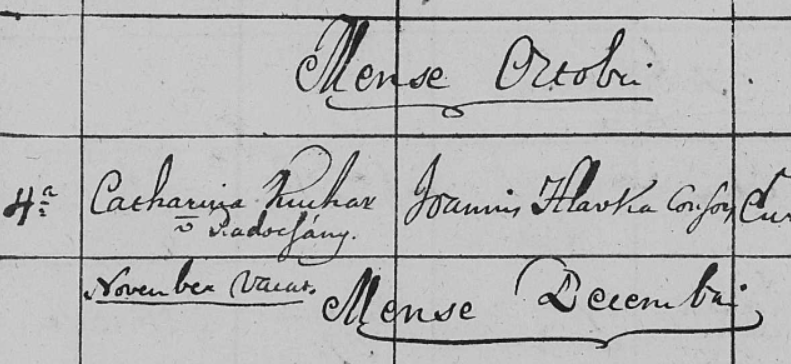 Mense Octobri
4ª Catharina Kuchar Joannis Hlavka Consors
v Radossány.
November Vacat.
Mense Decembri